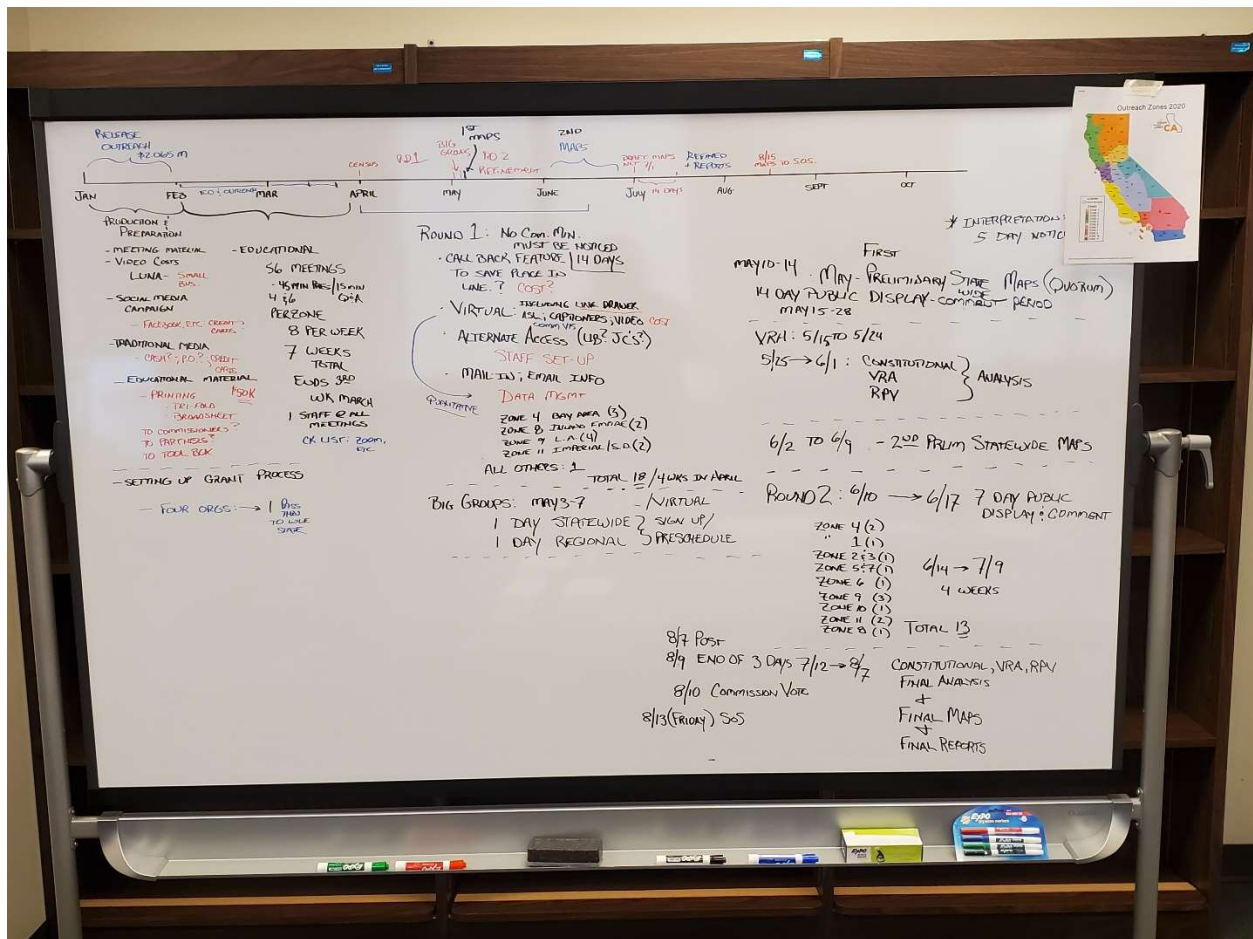 RELEASE
OUTREACH
$2.065 M
1ST
MAPS
BIG
GROUPS
RD 2
REFINEMENT
2ND
MAPS
CENSUS
RD1
DRAFT MAPS
REFINED
+ REPORTS
8/15
MAPS TO S.O.S.
JAN
FEB
MAR
APRIL
MAY
JUNE
JULY
14 DAYS
AUG
SEPT
OCT
Outreach Zones 2020
CA
PRODUCTION &
PREPARATION
- MEETING MATERIAL
- VIDEO COSTS
LUNA - SMALL
BUS.
- SOCIAL MEDIA
CAMPAIGN
- FACEBOOK, ETC CREDIT
CARDS
- TRADITIONAL MEDIA
- CASH?; P.O.?; CREDIT
CARDS
- EDUCATIONAL MATERIAL
- PRINTING $50K
- TRI-FOLD
BROADSHEET
TO COMMISSIONERS?
TO PARTNERS?
TO TOOL BOX
- SETTING UP GRANT PROCESS
- FOUR ORGS: → 1
THEN
STATE
- EDUCATIONAL
56 MEETINGS
- 45 MIN PRES/15 MIN
Q&A
PER ZONE
8 PER WEEK
7 WEEKS
TOTAL
ENDS 3RD
WK MARCH
1 STAFF @ ALL
MEETINGS
CK LIST: ZOOM,
ETC
ROUND 1: NO COM. MIN.
MUST BE NOTICED
14 DAYS
· CALL BACK FEATURE
TO SAVE PLACE IN
LINE? COST?
· VIRTUAL: INCLUDING LINE DRAWER
ASL; CAPTIONERS; VIDEO COST
· ALTERNATE ACCESS (LIB? JC'S?)
STAFF SET-UP
· MAIL-IN; EMAIL INFO
QUALITATIVE
DATA MGMT
ZONE 4 BAY AREA (3)
ZONE 8 INLAND EMPIRE (2)
ZONE 9 L.A. (4)
ZONE 11 IMPERIAL/S.D (2)
ALL OTHERS: 1
TOTAL 18 / 4 WKS IN APRIL
BIG GROUPS: MAY 3-7 - /VIRTUAL
1 DAY STATEWIDE } SIGN UP/
1 DAY REGIONAL } PRESCHEDULE
* INTERPRETATION:
5 DAY NOTIC
FIRST
MAY 10-14 · MAY - PRELIMINARY STATE WIDE MAPS (QUORUM)
14 DAY PUBLIC DISPLAY - COMMENT PERIOD
MAY 15-28
VRA: 5/15 TO 5/24
5/25 → 6/1: CONSTITUTIONAL
VRA
RPV
} ANALYSIS
6/2 TO 6/9 - 2ND PRLIM STATEWIDE MAPS
ROUND 2: 6/10 → 6/17 7 DAY PUBLIC
DISPLAY & COMMENT
ZONE 4 (2)
" 1 (1)
ZONE 2 & 3 (1)
ZONE 5 & 7 (1)
ZONE 6 (1)
ZONE 9 (3)
ZONE 10 (1)
ZONE 11 (2)
ZONE 8 (1)
6/14 → 7/9
4 WEEKS
TOTAL 13
8/7 POST
8/9 END OF 3 DAYS 7/12 → 8/7
CONSTITUTIONAL, VRA, RPV
FINAL ANALYSIS
+
FINAL MAPS
+
FINAL REPORTS
8/10 COMMISSION VOTE
8/13 (FRIDAY) SOS
EXPO
EXPO
EXPO
EXPO